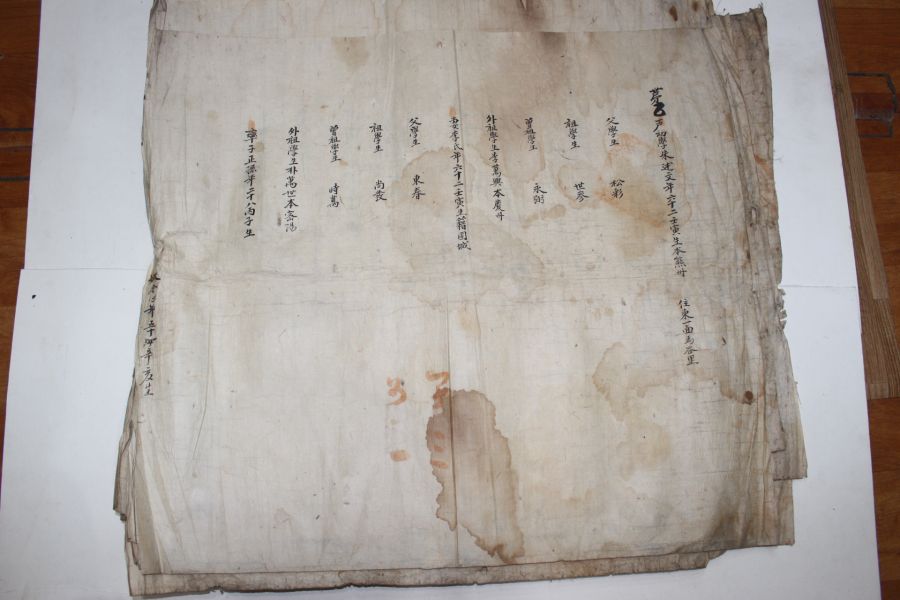 戶幼學朱述文年六十二壬寅生本熊州 住東一面馬谷里
父學生 松彩
祖學生 世參
曾祖學生 永弼
外祖學生李萬興本慶州
妻李氏年六十二壬寅生籍固城
父學生 東春
祖學生 尚發
曾祖學生 時萬
外祖學生朴萬世本密陽
率子正源年二十八丙子生
年五十 辛亥生